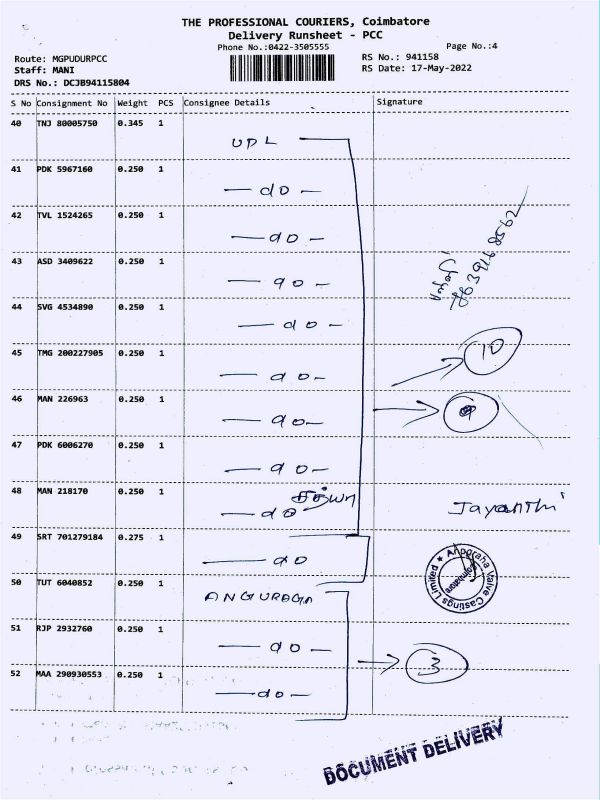 THE PROFESSIONAL COURIERS, Coimbatore
Delivery Runsheet - PCC
Phone No.:0422-3505555
Page No.:4
Route: MGPUDURPCC
RS No.: 941158
Staff: MANI
RS Date: 17-May-2022
DRS No.: DCJB94115804
S No Consignment No Weight PCS Consignee Details Signature
40 TNJ 80005750 0.345 1
UPL
41 PDK 5967160 0.250 1
— do —
42 TVL 1524265 0.250 1
— do —
43 ASD 3409622 0.250 1
— do —
44 SVG 4534890 0.250 1
— do —
45 TMG 200227905 0.250 1
10
— do —
46 MAN 226963 0.250 1
9
— do —
47 PDK 6006270 0.250 1
— do —
48 MAN 218170 0.250 1
— do
Jayanthi
49 SRT 701279184 0.275 1
— do
50 TUT 6040852 0.250 1
ANGURAGA
Valve Castings Limited
Coimbatore
51 RJP 2932760 0.250 1
— do —
3
52 MAA 290930553 0.250 1
— do —
DOCUMENT DELIVERY